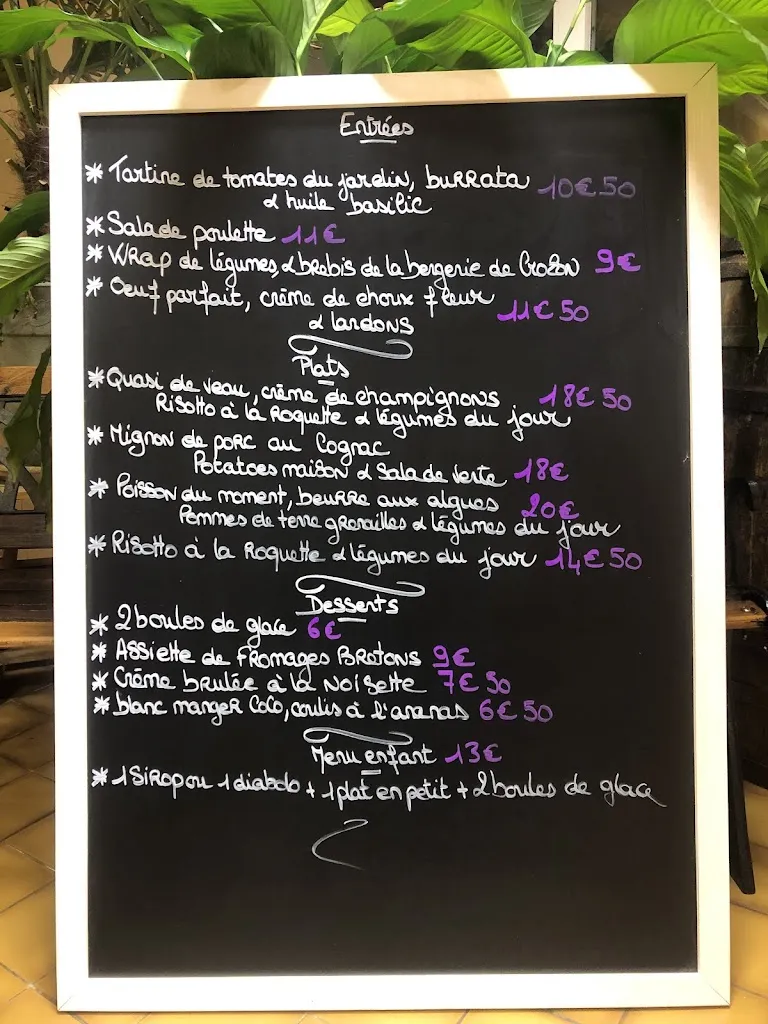 Entrées
* Tartine de tomates du jardin, burrata 10€50
& huile basilic
* Salade poulette 11€
* Wrap de légumes, & brebis de la bergerie de Crozon 9€
* Oeuf parfait, crème de choux fleur
& lardons 11€50
Plats
* Quasi de veau, crème de champignons 18€50
Risotto à la Roquette & légumes du jour
* Mignon de porc au Cognac
Potatoes maison & Salade verte 18€
* Poisson du moment, beurre aux algues 20€
Pommes de terre grenailles & légumes du jour
* Risotto à la Roquette & légumes du jour 14€50
Desserts
* 2 boules de glace 6€
* Assiette de Fromages Bretons 9€
* Crème brulée à la Noisette 7€50
* blanc manger Coco, coulis à l'ananas 6€50
Menu enfant 13€
* 1 Sirop ou 1 diabolo + 1 plat en petit + 2 boules de glace